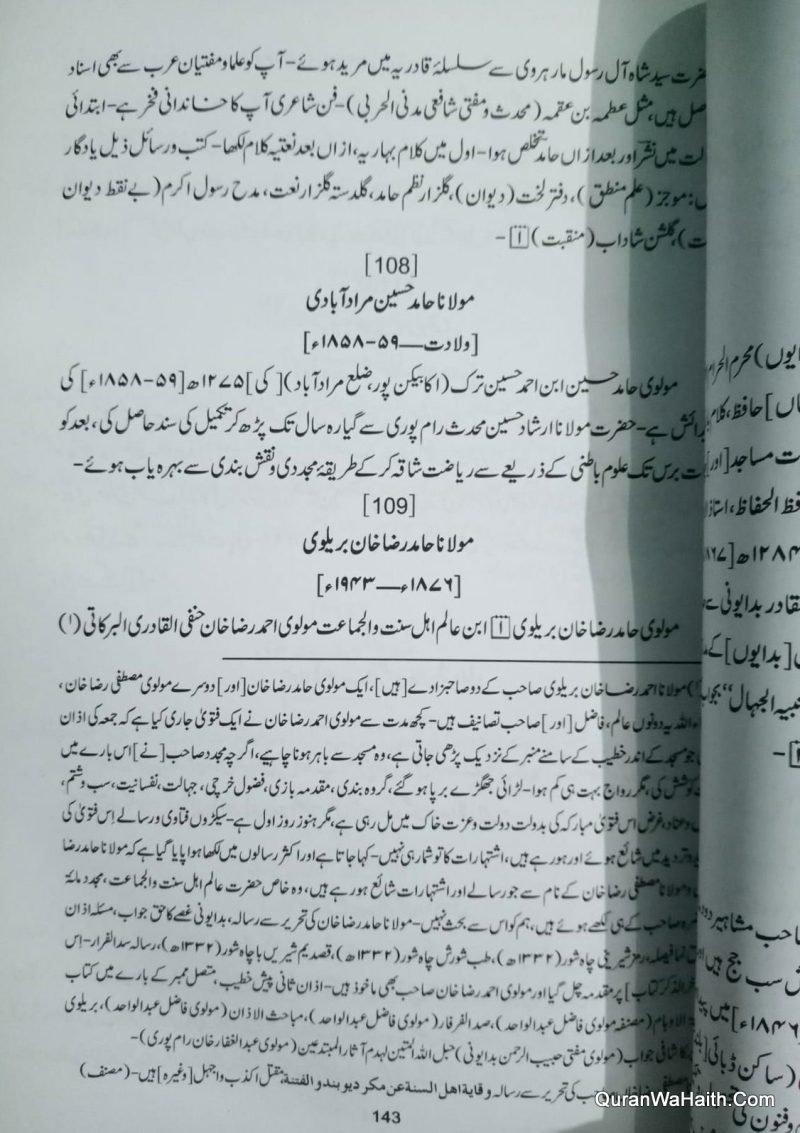 حضرت سید شاہ آل رسول مارہروی سے سلسلۂ قادریہ میں مرید ہوئے- آپ کو علما و مفتیان عرب سے بھی اسناد
حاصل ہیں، مثل عطمہ بن عقمہ (محدث و مفتی شافعی مدنی الحربی)- فن شاعری آپ کا خاندانی فخر ہے- ابتدائی
لت میں نشر اور بعد ازاں حامد تخلص ہوا- اول میں کلام بہاریہ، ازاں بعد نعتیہ کلام لکھا- کتب و رسائل ذیل یادگار
: موجز (علم منطق)، دفتر لخت (دیوان)، گلزار نظم حامد، گلدستہ گلزار نعت، مدح رسول اکرم (بے نقط دیوان
ت)، گلشن شاداب (منقبت) [أ]-
[108]
مولانا حامد حسین مرادآبادی
[ولادت—۵۹-۱۸۵۸ء]
مولوی حامد حسین ابن احمد حسین ترک (اکابیکن پور، ضلع مرادآباد) [کی] ۱۲۷۵ھ [۵۹-۱۸۵۸ء] کی
پیدائش ہے- حضرت مولانا ارشاد حسین محدث رام پوری سے گیارہ سال تک پڑھ کر تکمیل کی سند حاصل کی، بعد کو
ت برس تک علوم باطنی کے ذریعے سے ریاضت شاقہ کر کے طریقۂ مجددی و نقش بندی سے بہرہ یاب ہوئے-
[109]
مولانا حامد رضا خان بریلوی
[۱۸۷۶ء—۱۹۴۳ء]
مولوی حامد رضا خان بریلوی [أ] ابن عالم اہل سنت والجماعت مولوی احمد رضا خان حنفی القادری البرکاتی (۱)
(۱) مولانا احمد رضا خان بریلوی صاحب کے دو صاحبزادے [ہیں]، ایک مولوی حامد رضا خان [اور] دوسرے مولوی مصطفی رضا خان،
اللہ یہ دونوں عالم، فاضل [اور] صاحب تصانیف ہیں- کچھ مدت سے مولوی احمد رضا خان نے ایک فتویٰ جاری کیا ہے کہ جمعہ کی اذان
جو مسجد کے اندر خطیب کے سامنے منبر کے نزدیک پڑھی جاتی ہے، وہ مسجد سے باہر ہونا چاہیے، اگرچہ مجدد صاحب [نے] اس بارے میں
کوشش کی، مگر رواج بہت ہی کم ہوا- لڑائی جھگڑے برپا ہو گئے، گروہ بندی، مقدمہ بازی، فضول خرچی، جہالت، نفسانیت، سب و شتم،
و عناد، غرض اس فتویٰ مبارکہ کی بدولت دولت و عزت خاک میں مل رہی ہے، مگر ہنوز روز اول ہے- سیکڑوں فتاوی و رسالے اس فتویٰ کی
و تردید میں شائع ہوئے اور ہو رہے ہیں، اشتہارات کا تو شمار ہی نہیں- کہا جاتا ہے اور اکثر رسالوں میں لکھا ہوا پایا گیا ہے کہ مولانا حامد رضا
و مولانا مصطفی رضا خان کے نام سے جو رسالے اور اشتہارات شائع ہو رہے ہیں، وہ خاص حضرت عالم اہل سنت والجماعت، مجدد مائۃ
صاحب کے ہی لکھے ہوئے ہیں، ہم کو اس سے بحث نہیں- مولانا حامد رضا خان کی تحریر سے رسالہ، بدایونی غصے کا حق جواب، مسئلہ اذان
نما فیصلہ، رمز شیریں چاہ شور (۱۳۳۲ھ)، طلب شورش چاہ شور (۱۳۳۲ھ)، قصدیم شیریں باچاہ شور (۱۳۳۲ھ)، رسالہ سد الفرار- اس
الذکر کتاب] پر مقدمہ چل گیا اور مولوی احمد رضا خان صاحب بھی ماخوذ ہیں- اذان ثانی پیش خطیب، متصل ممبر کے بارے میں کتاب
الاوہام (مصنفہ مولوی فاضل عبدالواحد)، صد الفرفار (مولوی فاضل عبدالواحد)، مباحث الاذان (مولوی فاضل عبدالواحد)، بریلوی
کا شافی جواب (مولوی مفتی حبیب الرحمن بدایونی) حبل اللہ المتین لہدم آثار المبتدعین (مولوی عبدالغفار خان رام پوری)-
کی تحریر سے رسالہ وقایۃ اہل السنۃ عن مکر دیوبند والفتنۃ، مقتل اکذب و اجہل [وغیرہ] ہیں- (مصنف)
143
ایوں) محرم الحرام
اں] حافظ، کلام
ت مساجد [اور]
ظ الحفاظ، استاذ
۱۲۸۴ھ [۶۷
قادر بدایونی سے
[بدایوں] کے
نبیہ الجہال“
-
احب مشاہیر
سب جج ہیں
۱۸۴۶ء] میں
(ساکن ڈبائی [
و فنون کی
QuranWaHaith.Com